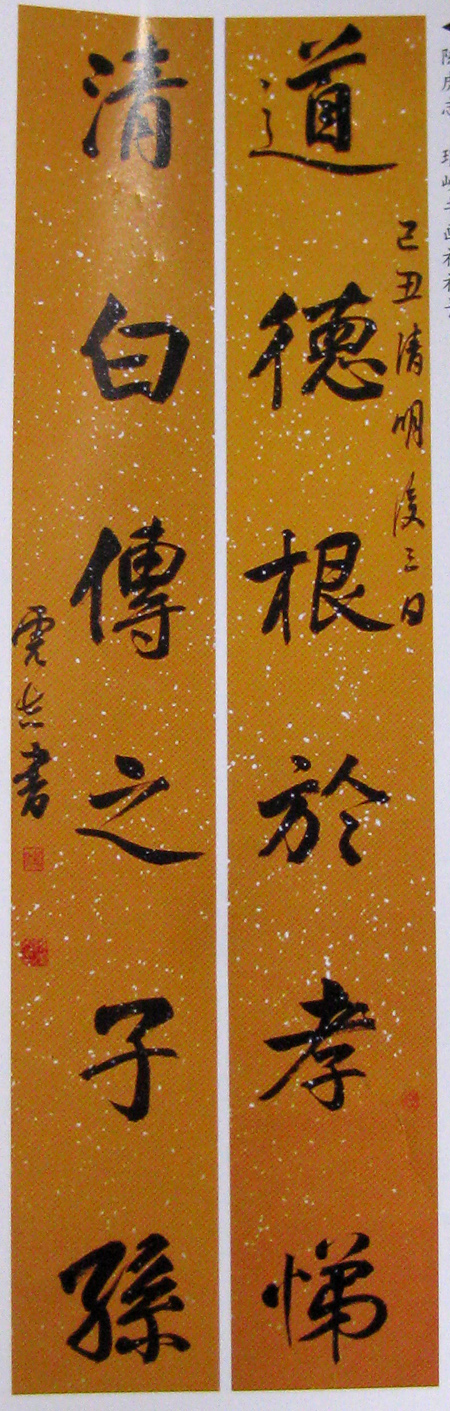 道德根於孝悌
己丑清明後三日
清白傳之子孫
虎志書